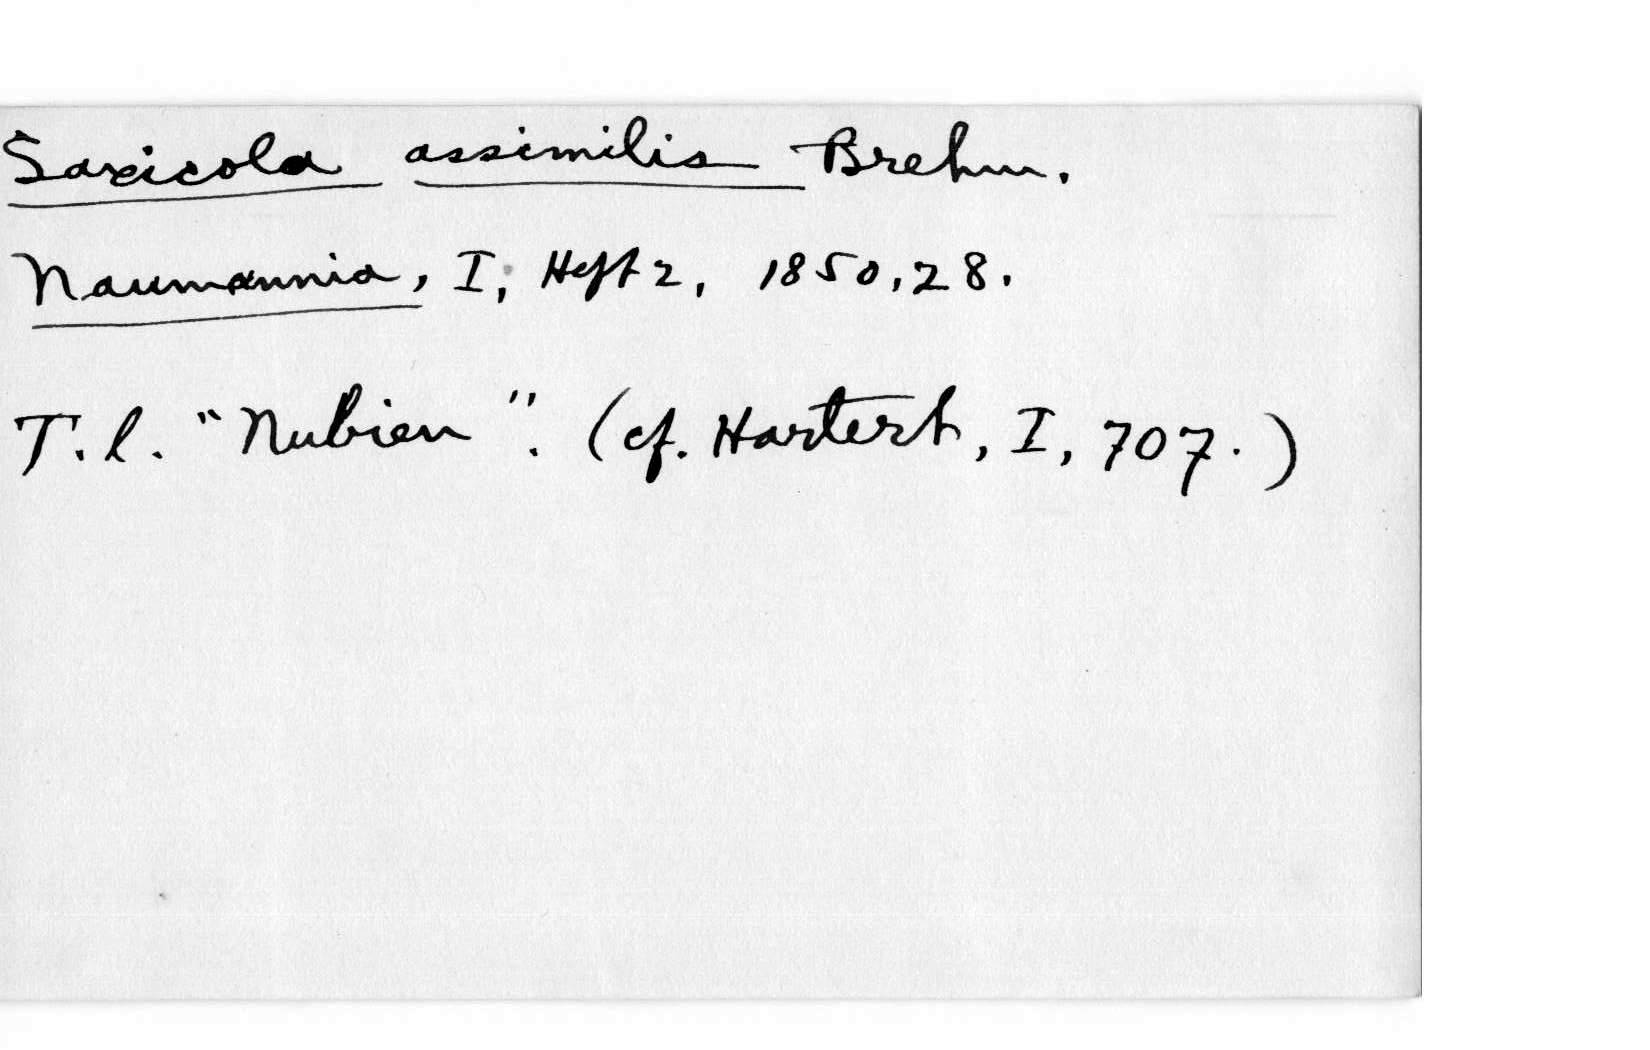 Saxicola assimilis Brehm.
Naumannia, I, Heft 2, 1850, 28.
T.l. "Nubien". (cf. Hartert, I, 707.)